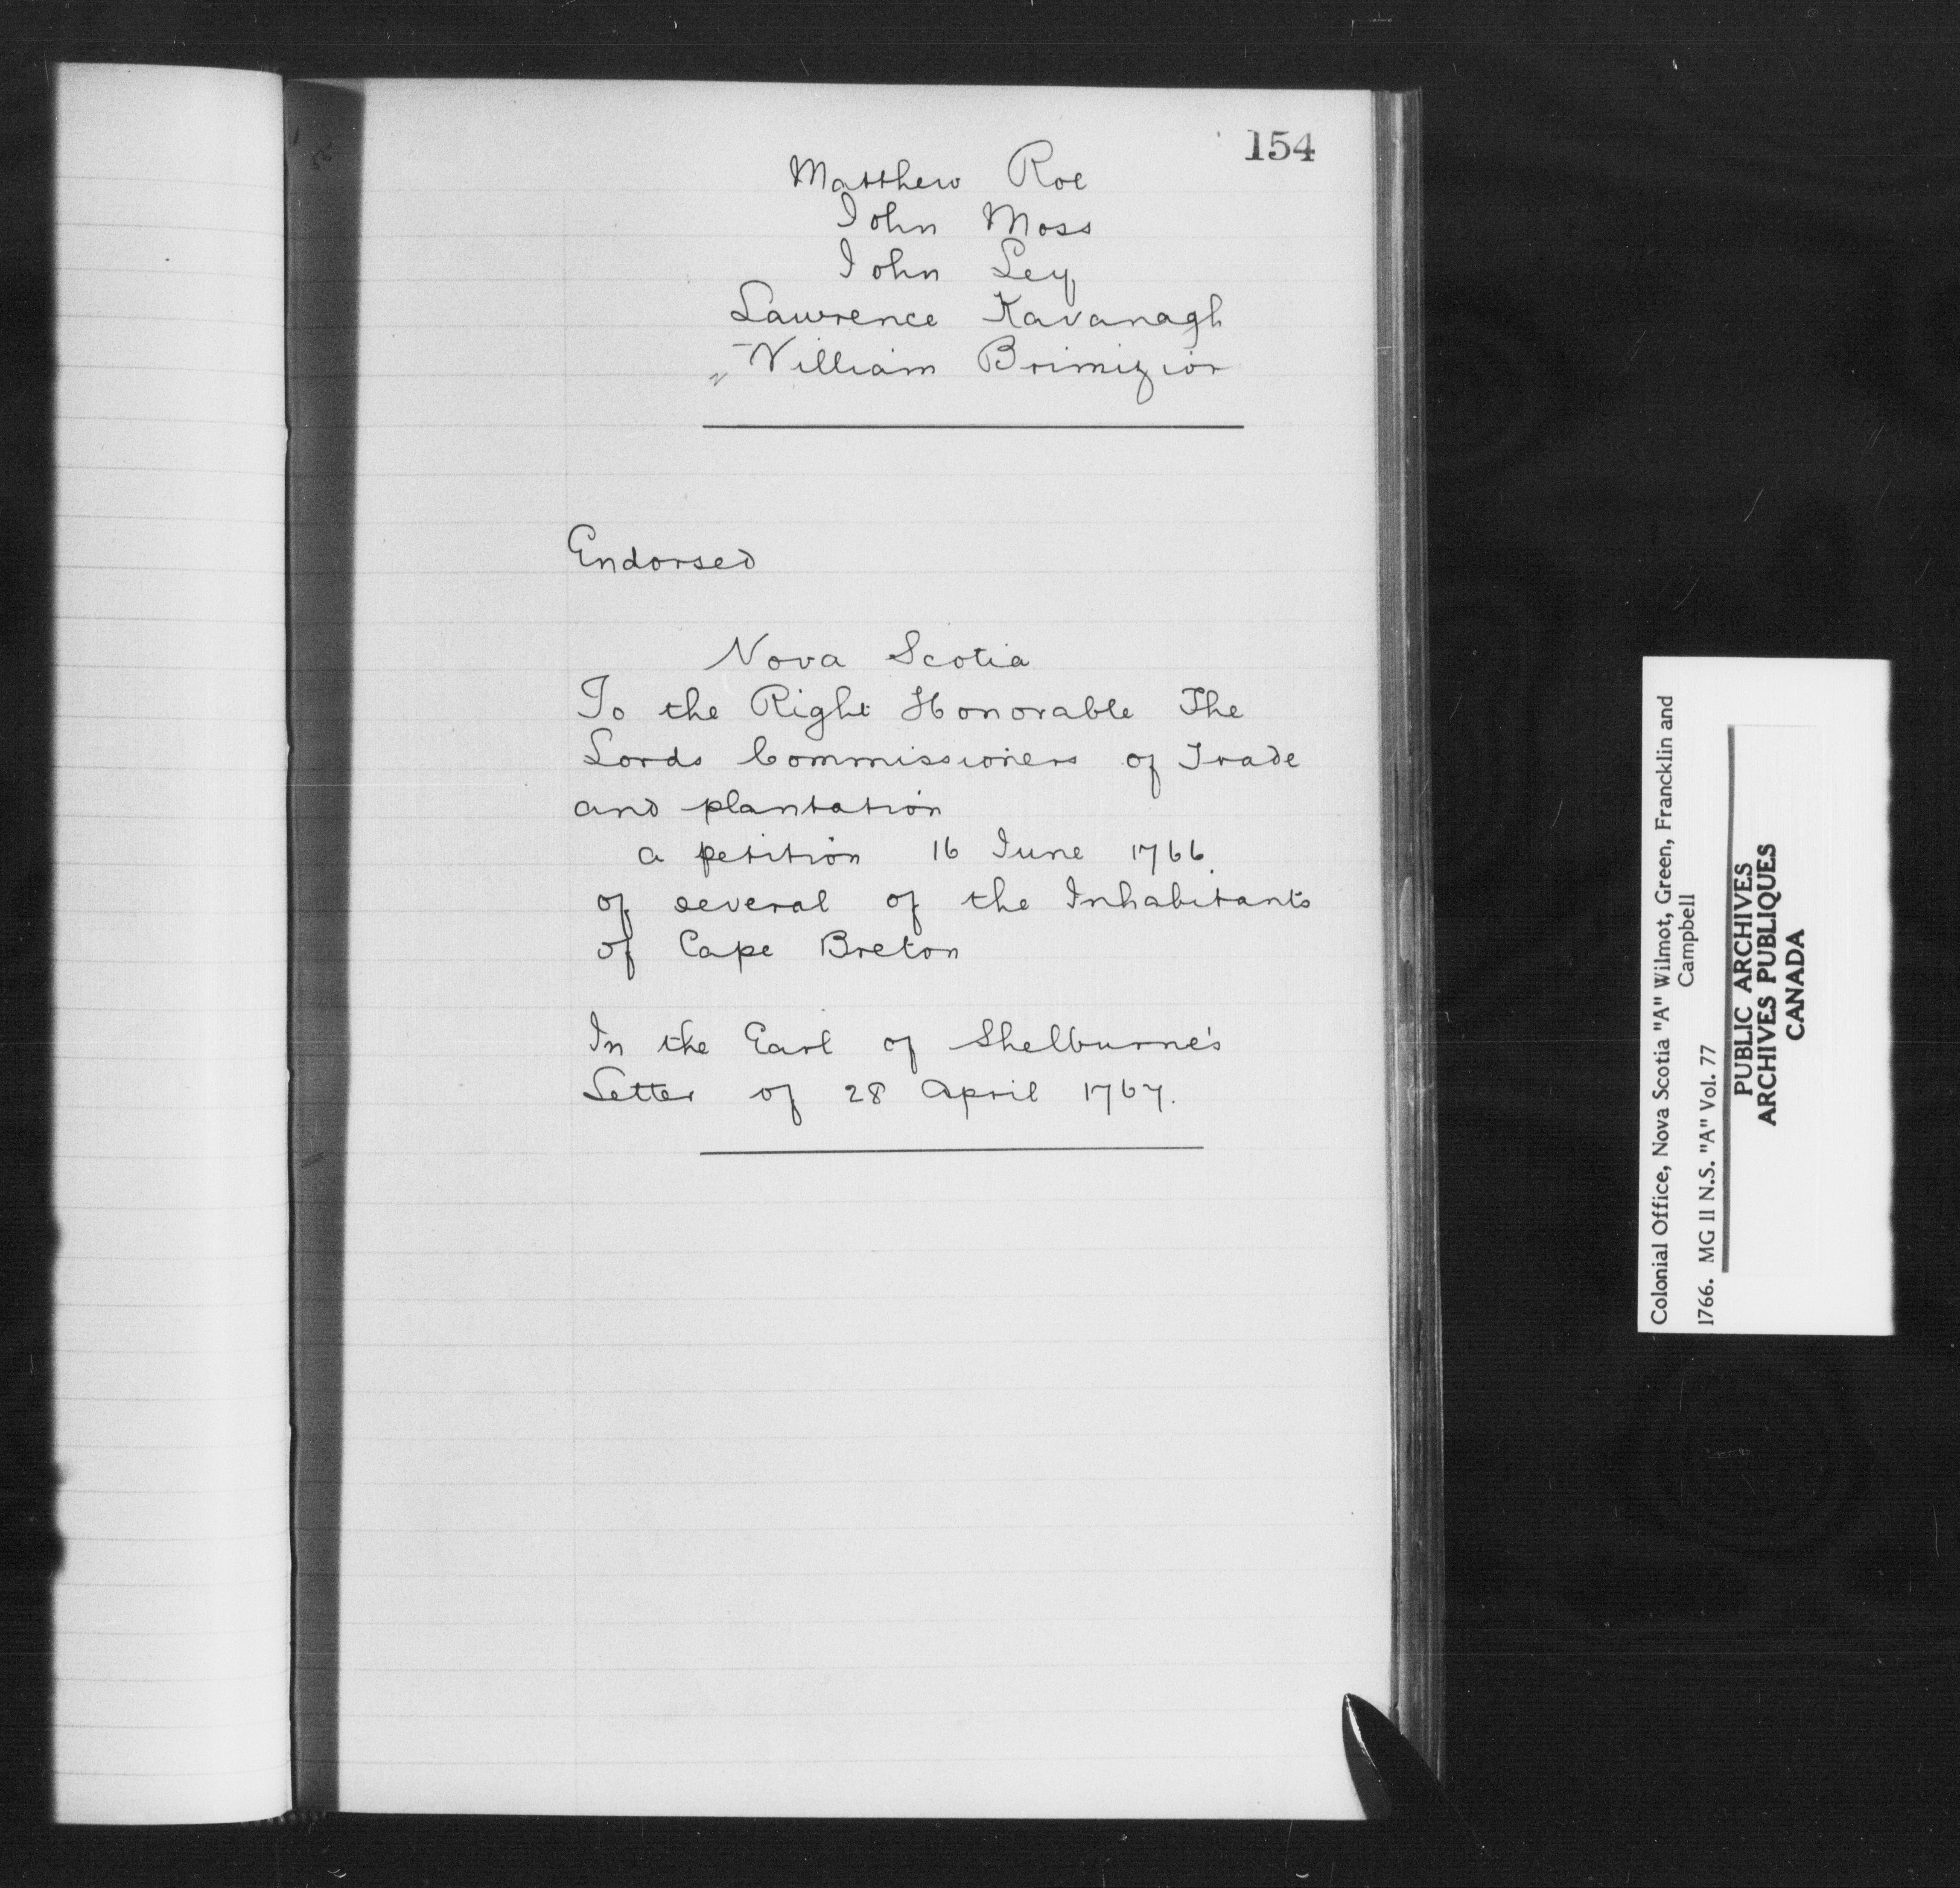 154
Matthew Roe
John Moss
John Ley
Lawrence Kavanagh
William Brimizior
Endorsed
Nova Scotia
To the Right Honorable The
Lords Commissioners of Trade
and plantation
a petition 16 June 1766.
of several of the Inhabitants
of Cape Breton
In the Earl of Shelburne's
Letter of 28 April 1767.
Colonial Office, Nova Scotia "A" Wilmot, Green, Francklin and
Campbell
1766. MG 11 N.S. "A" Vol. 77
PUBLIC ARCHIVES
ARCHIVES PUBLIQUES
CANADA